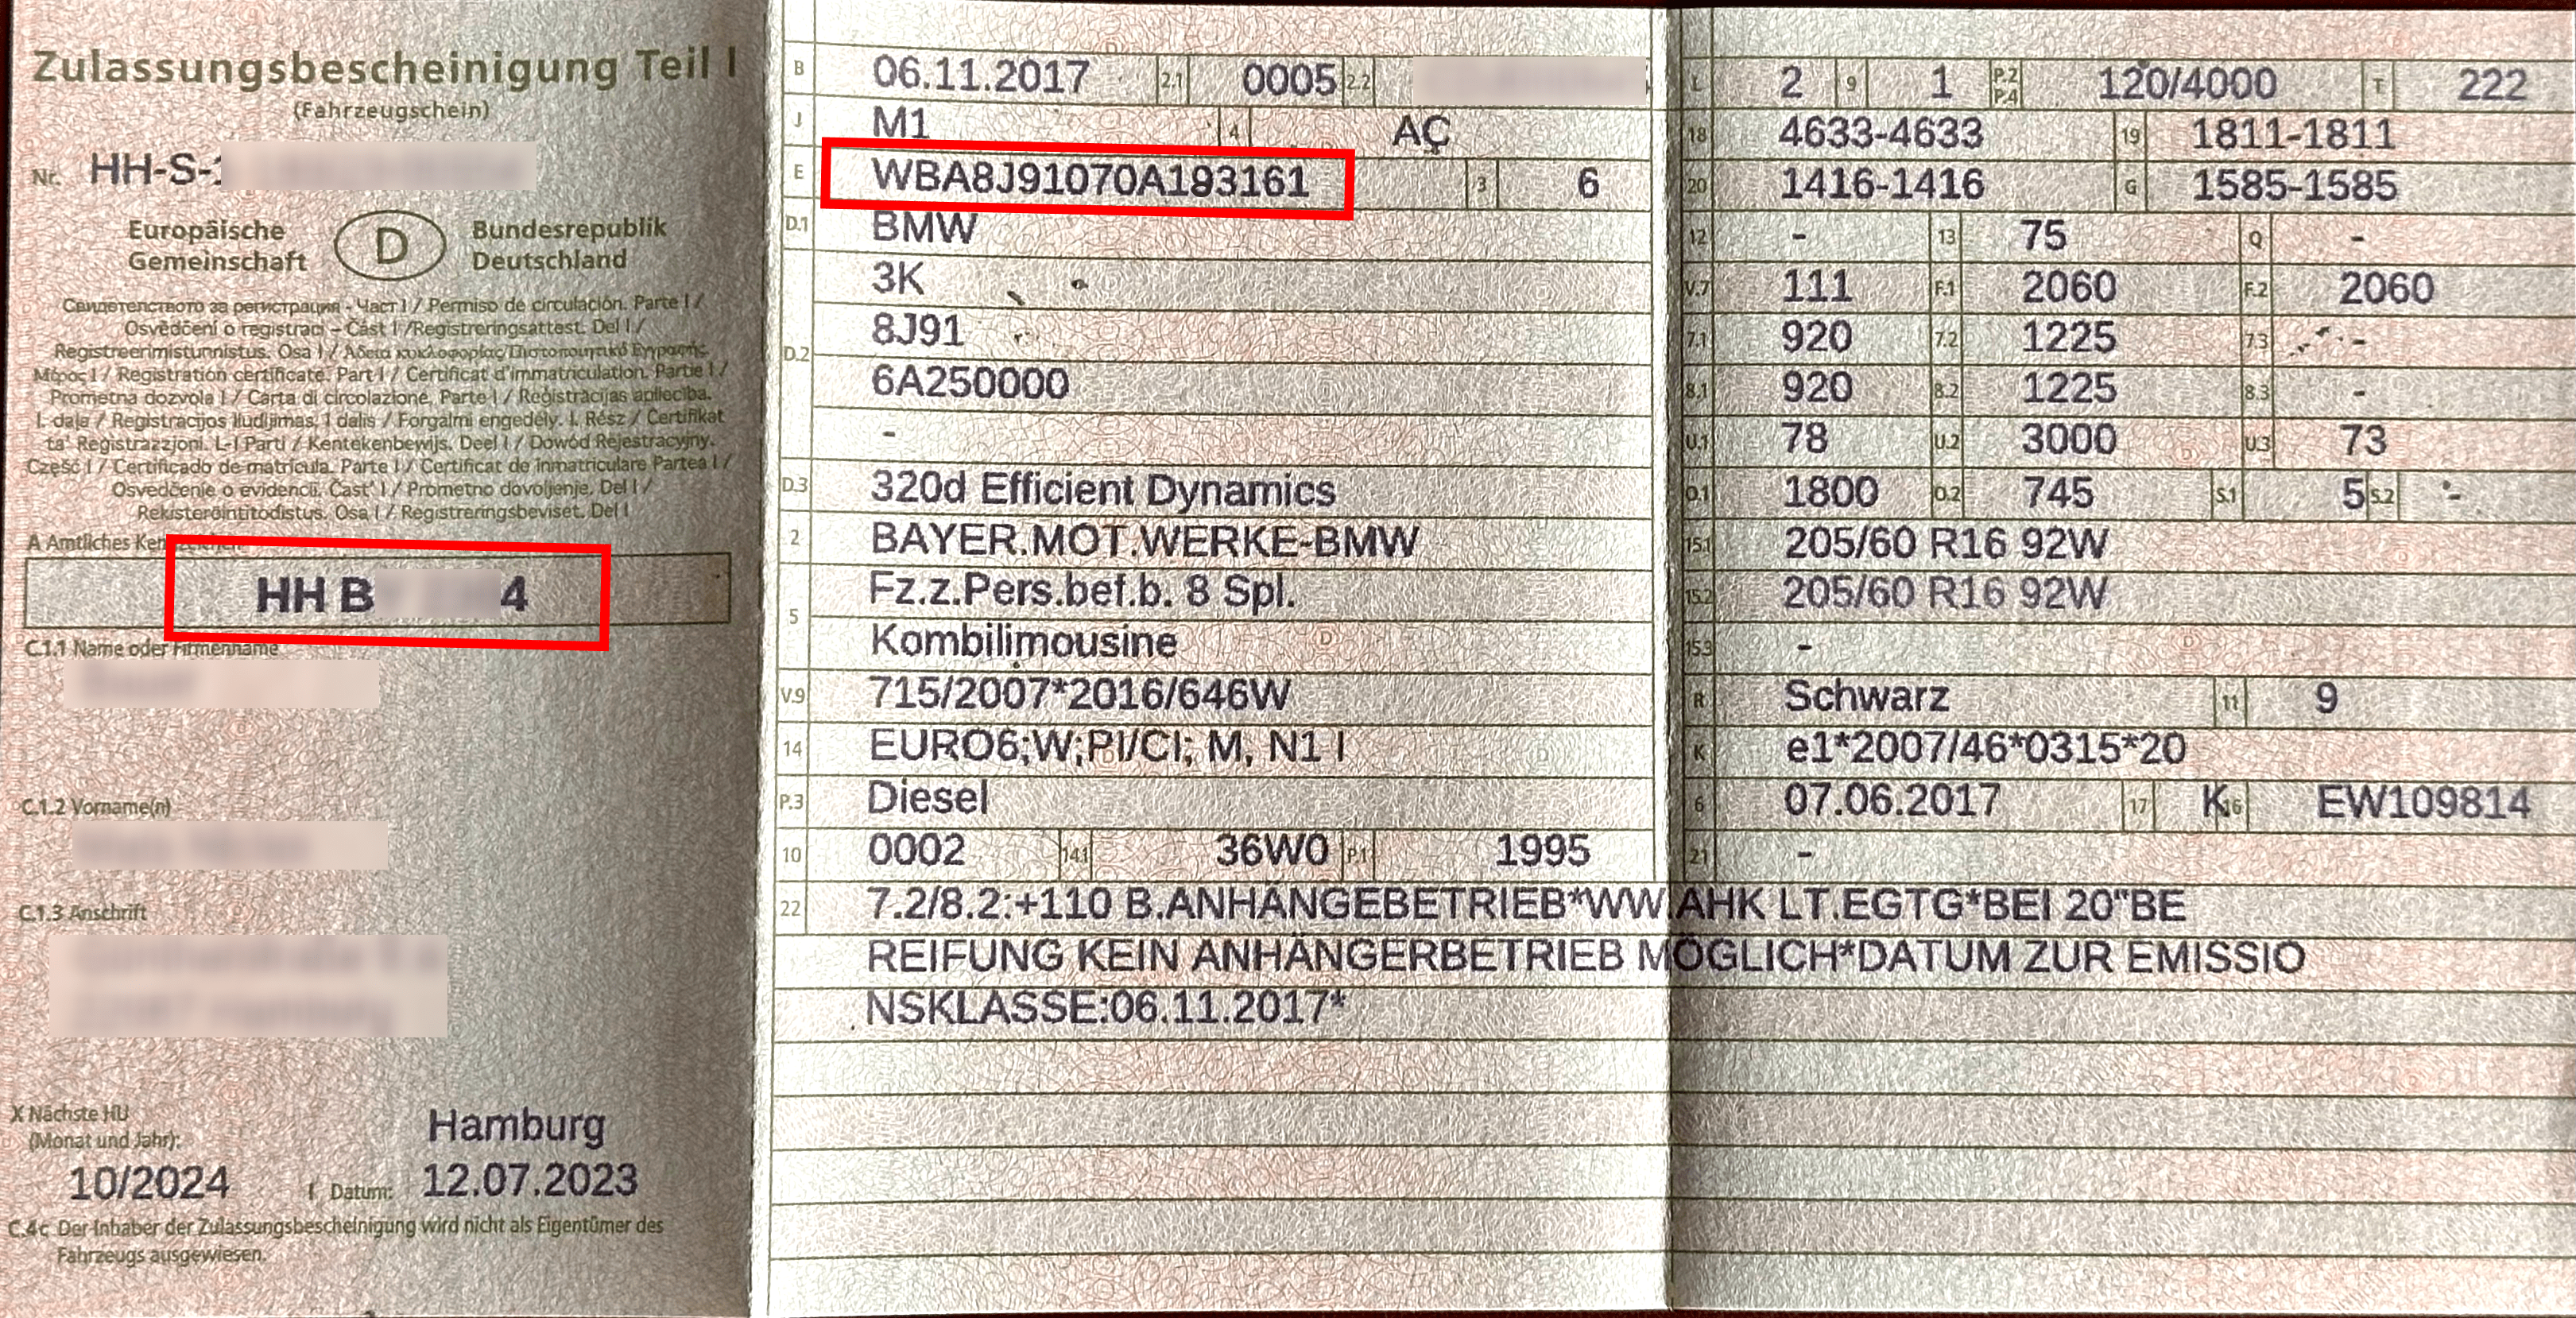 Zulassungsbescheinigung Teil I
(Fahrzeugschein)
Nr. HH-S-
Europäische Gemeinschaft
D
Bundesrepublik Deutschland
Свидетелството за регистрация - Част I / Permiso de circulación. Parte I /
Osvědčení o registraci – Část I / Registreringsattest. Del I /
Registreerimistunnistus. Osa I / Άδεια κυκλοφορίας/Πιστοποιητικό Εγγραφής
Μέρος I / Registration certificate. Part I / Certificat d'immatriculation. Partie I /
Prometna dozvola I / Carta di circolazione. Parte I / Reģistrācijas apliecība.
I. daļa / Registracijos liudijimas. I dalis / Forgalmi engedély. I. Rész / Certifikat
ta' Registrazzjoni. L-I Parti / Kentekenbewijs. Deel I / Dowód Rejestracyjny.
Część I / Certificado de matrícula. Parte I / Certificat de înmatriculare Partea I /
Osvedčenie o evidencii. Časť I / Prometno dovoljenje. Del I /
Rekisteröintitodistus. Osa I / Registreringsbeviset. Del I
A Amtliches
HH B 4
C.1.1 Name oder Firmenname
C.1.2 Vorname(n)
C.1.3 Anschrift
X Nächste HU
(Monat und Jahr):
10/2024
Hamburg
I Datum: 12.07.2023
C.4c Der Inhaber der Zulassungsbescheinigung wird nicht als Eigentümer des
Fahrzeugs ausgewiesen.
B 06.11.2017 2.1 0005 2.2
J M1 4 AÇ
E WBA8J91070A193161 3 6
D.1 BMW
3K
D.2 8J91
6A250000
-
D.3 320d Efficient Dynamics
2 BAYER.MOT.WERKE-BMW
5 Fz.z.Pers.bef.b. 8 Spl.
Kombilimousine
V.9 715/2007*2016/646W
14 EURO6;W;PI/CI; M, N1 I
P.3 Diesel
10 0002 14.1 36W0 P.1 1995
L 2 9 1 P.2 P.4 120/4000 T 222
18 4633-4633 19 1811-1811
20 1416-1416 G 1585-1585
12 - 13 75 Q -
V.7 111 F.1 2060 F.2 2060
7.1 920 7.2 1225 7.3 -
8.1 920 8.2 1225 8.3 -
U.1 78 U.2 3000 U.3 73
O.1 1800 O.2 745 S.1 5 S.2 -
15.1 205/60 R16 92W
15.2 205/60 R16 92W
15.3 -
R Schwarz 11 9
K e1*2007/46*0315*20
6 07.06.2017 17 K 16 EW109814
21 -
22 7.2/8.2:+110 B.ANHÄNGEBETRIEB*WW.AHK LT.EGTG*BEI 20"BE
REIFUNG KEIN ANHÄNGERBETRIEB MÖGLICH*DATUM ZUR EMISSIO
NSKLASSE:06.11.2017*